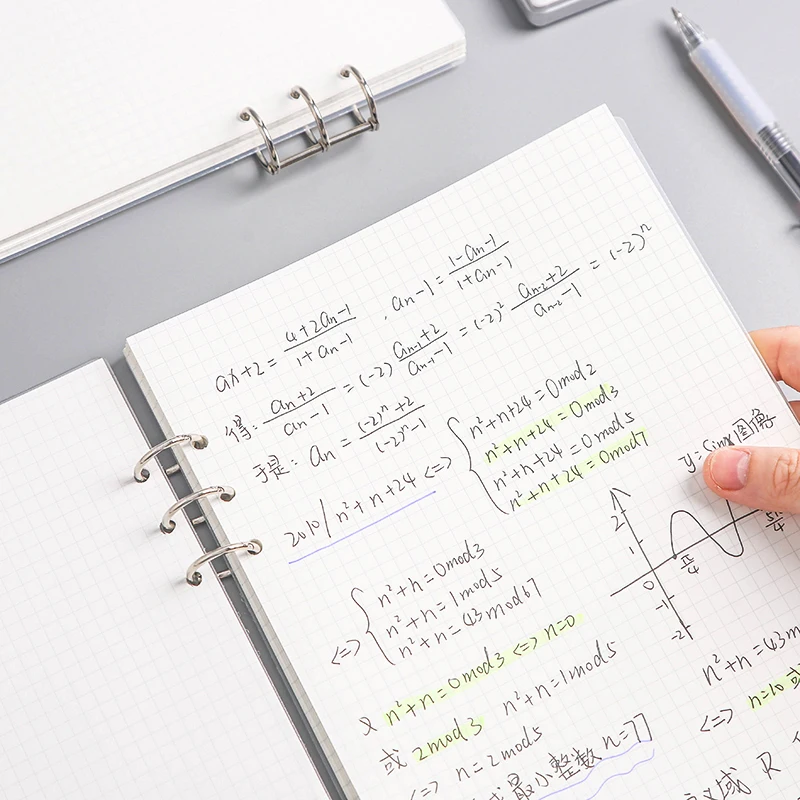 ax+2 = (4+2an-1)/(1+an-1) , an-1 = (1-an-1)/(1+an-1)
得: (an+2)/(an-1) = (-2) (an-1+2)/(an-1-1) = (-2)² (an-2+2)/(an-2-1) = (-2)ⁿ
于是: an = ((-2)ⁿ+2)/((-2)ⁿ-1)
2010/n²+n+24 <=> {
n²+n+24=0mod2
n²+n+24=0mod3
n²+n+24=0mod5
n²+n+24=0mod7
y=sinx图像
2
1
0
-1
-2
π/4
<=> {
n²+n=0mod3
n²+n=1mod5
n²+n=43mod67
又 n²+n=0mod3 <=> n=0
或 2mod3 n²+n=1mod5
<=> n=2mod5
最小整数 n=77
n²+n=43m
<=> n=10 或
域 R